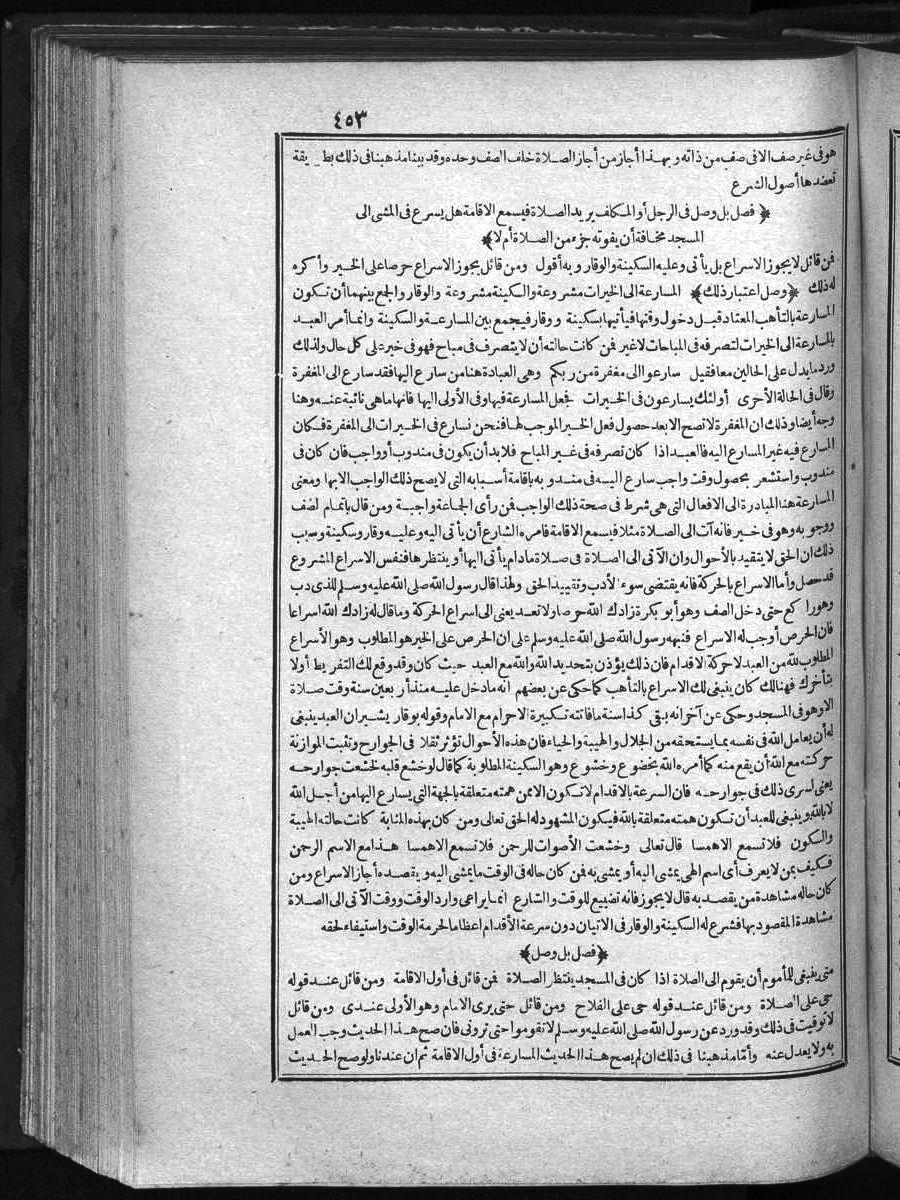 ٤٥٣
هو فى غير صف الا فى صف من ذاته وبهذا أجاز من أجاز الصلاة خلف الصف وحده وقد بينا مذهبنا فى ذلك بطريقة
تعضدها أصول الشرع
﴿ فصل بل وصل فى الرجل أو المكلف يريد الصلاة فيسمع الاقامة هل يسرع فى المشى الى
المسجد مخافة أن يفوته جزء من الصلاة أم لا﴾
فمن قائل لا يجوز الاسراع بل يأتى وعليه السكينة والوقار وبه أقول ومن قائل يجوز الاسراع حرصا على الخير وأكره
له ذلك ﴿وصل اعتبار ذلك﴾ المسارعة الى الخيرات مشروعة والسكينة مشروعة والوقار والجمع بينهما أن تكون
المسارعة بالتأهب المعتاد قبل دخول وقتها فيأتيها بسكينة ووقار فيجمع بين المسارعة والسكينة وانما أمر العبد
بالمسارعة الى الخيرات لتصرفه فى المباحات لا غير فمن كانت حالته أن لا يتصرف فى مباح فهو فى خير على كل حال ولذلك
ورد ما يدل على الحالين معا فقيل سارعوا الى مغفرة من ربكم وهى العبادة هنا من سارع اليها فقد سارع الى المغفرة
وقال فى الحالة الأخرى أولئك يسارعون فى الخيرات فجعل المسارعة فيها وفى الأولى اليها فانها ما هى نائبة عنه وهنا
وجه أيضا وذلك ان المغفرة لا تصح الا بعد حصول فعل الخير الموجب لها فنحن نسارع فى الخيرات الى المغفرة فكان
المسارع فيه غير المسارع اليه فالعبد اذا كان تصرفه فى غير المباح فلا بد أن يكون فى مندوب أو واجب فان كان فى
مندوب واستشعر بحصول وقت واجب سارع اليه فى مندوبه باقامة أسبابه التى لا يصح ذلك الواجب الا بها ومعنى
المسارعة هنا المبادرة الى الافعال التى هى شرط فى صحة ذلك الواجب فمن رأى الجماعة واجبة ومن قال باتمام لصف
ووجوبه وهو فى خير فانه آت الى الصلاة مثلا فيسمع الاقامة فامره الشارع أن يأتى اليه وعليه وقار وسكينة وسبب
ذلك ان الحق لا يتقيد بالأحوال وان الآتى الى الصلاة فى صلاة ما دام يأتى اليها أو ينتظرها فنفس الاسراع المشروع
قد حصل وأما الاسراع بالحركة فانه يقتضى سوء الأدب وتقييد الحق ولهذا قال رسول الله صلى الله عليه وسلم للذى دب
وهو راكع حتى دخل الصف وهو أبو بكرة زادك الله حرصا ولا تعد يعنى الى اسراع الحركة وما قال له زادك الله اسراعا
فان الحرص أوجب له الاسراع فنبهه رسول الله صلى الله عليه وسلم على ان الحرص على الخير هو المطلوب وهو الأسراع
المطلوب لله من العبد لا حركة الاقدام فان ذلك يؤذن بتحديد الله والله مع العبد حيث كان وقد وقع لك التفريط أولا
بتأخرك فهنالك كان ينبغى لك الاسراع بالتأهب كما حكى عن بعضهم انه ما دخل عليه منذ أربعين سنة وقت صلاة
الا وهو فى المسجد وحكى عن آخر انه بقى كذا سنة ما فاتته تكبيرة الاحرام مع الامام وقوله بوقار يشير ان العبد ينبغى
له أن يعامل الله فى نفسه بما يستحقه من الجلال والهيبة والحياء فان هذه الأحوال تؤثر ثقلا فى الجوارح وتثبت الموازنة
حركته مع الله أن يقع منه كما أمره الله بخضوع وخشوع وهو السكينة المطلوبة كما قال لو خشع قلبه لخشعت جوارحه
يعنى لسرى ذلك فى جوارحه فان السرعة بالاقدام لا تكون الا ممن همته متعلقة بالجهة التى يسارع اليها من أجل الله
لا بالله وينبغى للعبد أن تكون همته متعلقة بالله فيكون المشهود له الحق تعالى ومن كان بهذه المثابة كانت حالته الهيبة
والسكون فلا تسمع الا همسا قال تعالى وخشعت الأصوات للرحمن فلا تسمع الا همسا هذا مع الاسم الرحمن
فكيف بمن لا يعرف أى اسم الهى يمشى اليه أو يمشى به فمن كان حاله فى الوقت ما يمشى اليه ويقصده أجاز الاسراع ومن
كان حاله مشاهدة من يقصد به قال لا يجوز فانه تضييع للوقت والشارع انما يراعى وارد الوقت ووقت الآتى الى الصلاة
مشاهدة المقصود بها فشرع له السكينة والوقار فى الاتيان دون سرعة الأقدام اعظاما لحرمة الوقت واستيفاء لحقه
﴿فصل بل وصل﴾
متى ينبغى للمأموم أن يقوم الى الصلاة اذا كان فى المسجد ينتظر الصلاة فمن قائل فى أول الاقامة ومن قائل عند قوله
حى على الصلاة ومن قائل عند قوله حى على الفلاح ومن قائل حتى يرى الامام وهو الأولى عندى ومن قائل
لا توقيت فى ذلك وقد ورد عن رسول الله صلى الله عليه وسلم لا تقوموا حتى ترونى فان صح هذا الحديث وجب العمل
به ولا يعدل عنه وأما مذهبنا فى ذلك ان لم يصح هذا الحديث المسارعة فى أول الاقامة ثم ان عندنا ولو صح الحديث